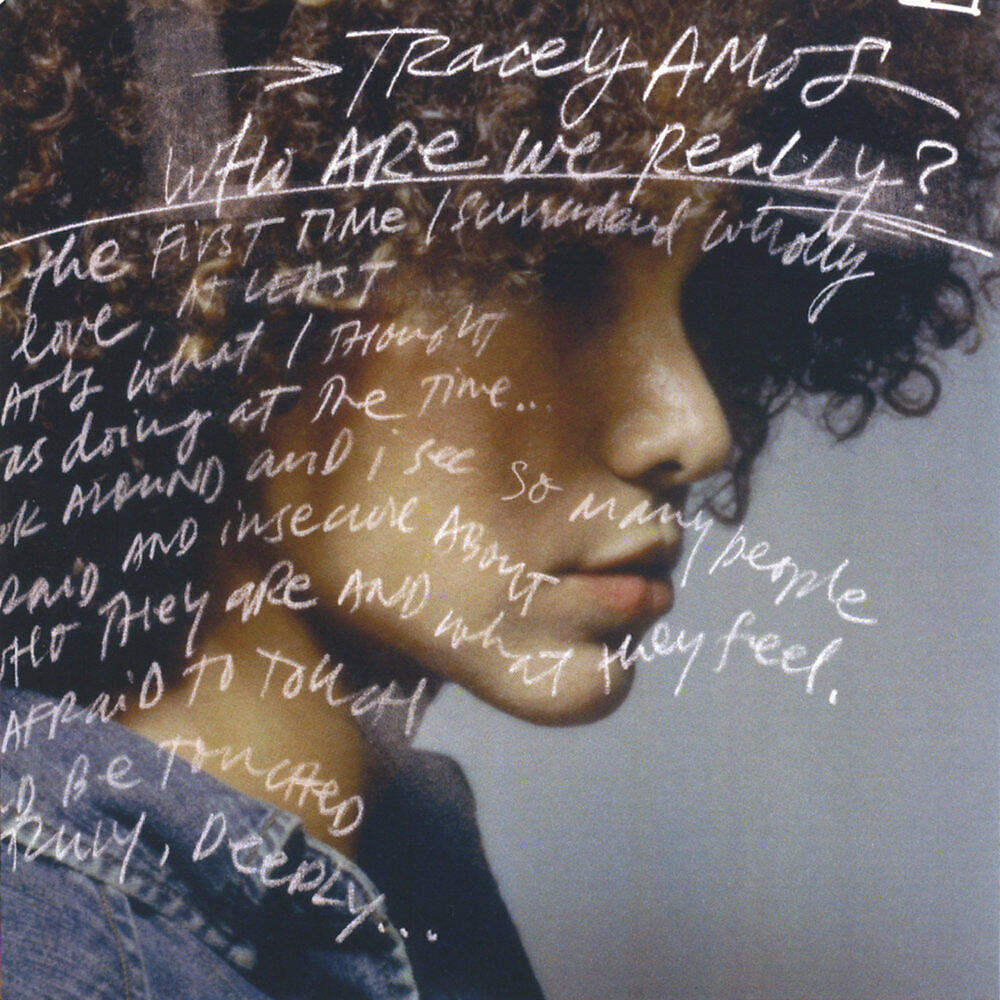 TRacey AMOS
WHO ARe we Really?
the FIRST TIMe I surrendered wholly
love, At LEAST
what I THought
as doing at The Time...
AROUND and i see so many people
AND insecure ABOUT
THey aRe AND what they feel.
AFRaiD TO TOUCH
BE TOUCHeD
TRuly, DeePLY...